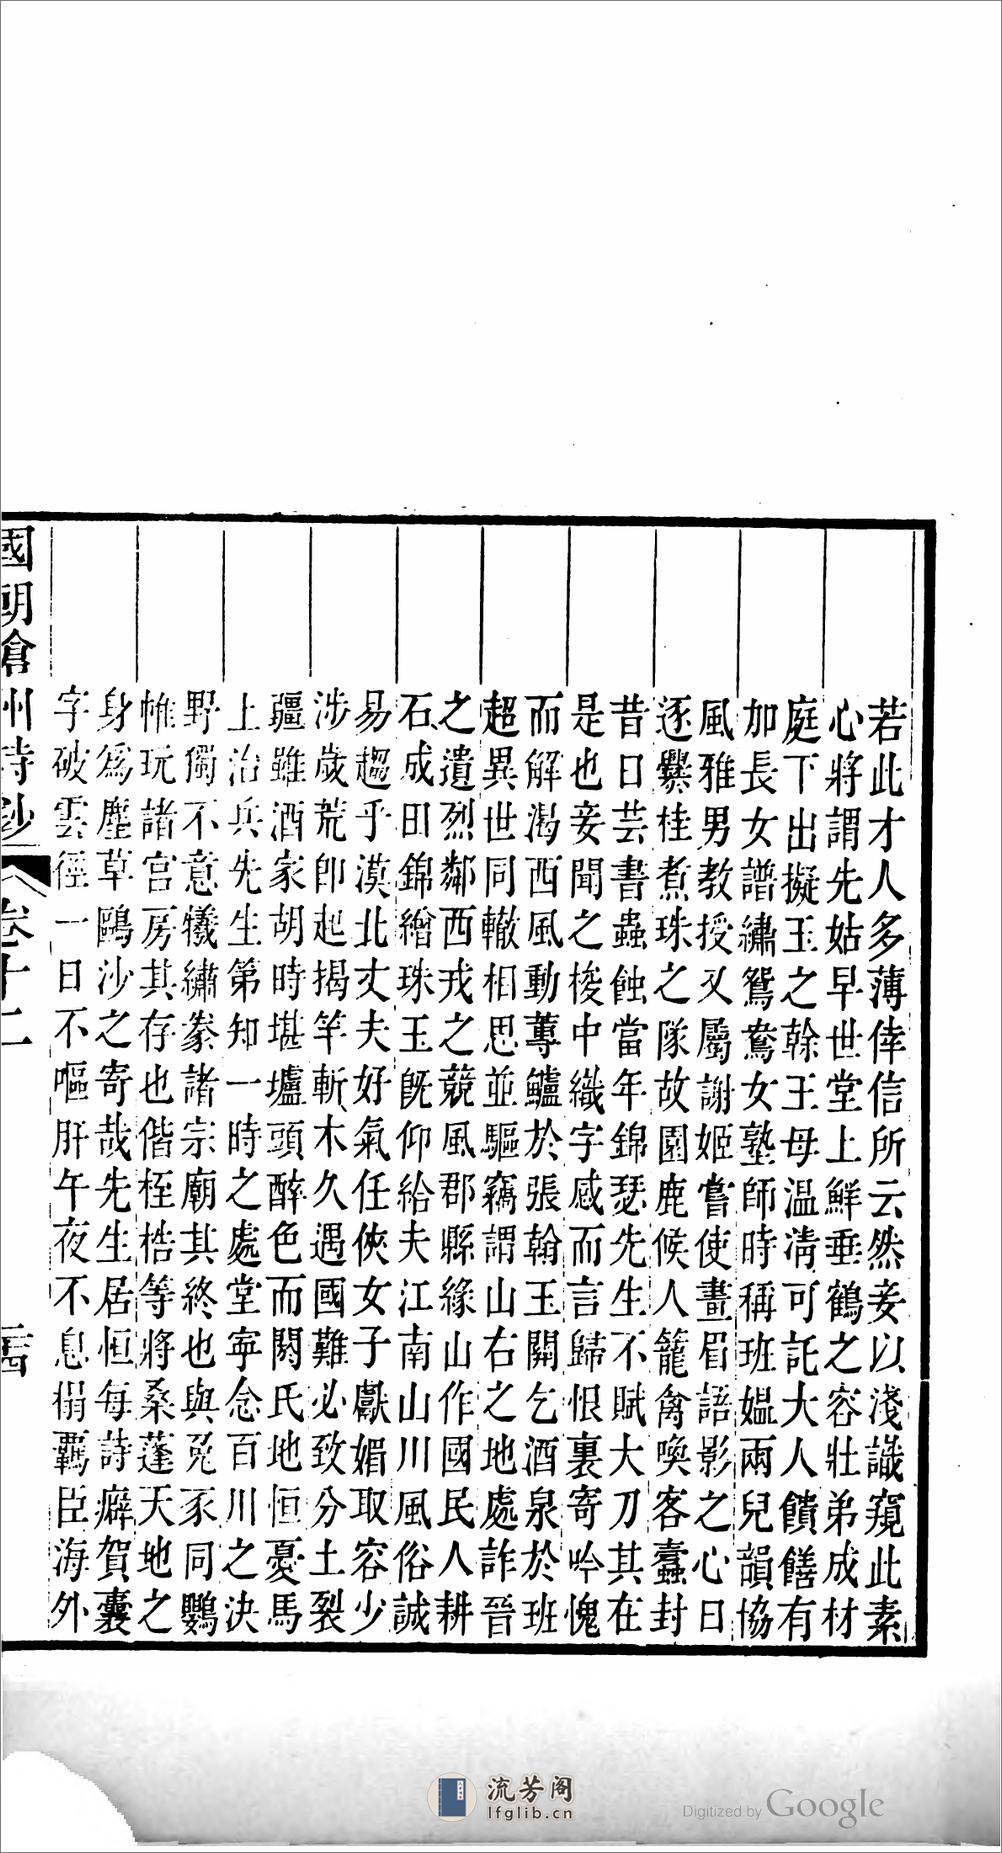 若此才人多薄倖信所云然妾以淺識窺此素
心將謂先姑早世堂上鮮垂鶴之容壯弟成材
庭下出擬玉之榦王母温凊可託大人饋饍有
加長女譜繡鴛鴦女塾師時稱班媪兩兒韻協
風雅男教授又屬謝姬嘗使畫眉語影之心日
逐爨桂煮珠之隊故園鹿候人籠禽喚客蠹封
昔日芸書蟲蝕當年錦瑟先生不賦大刀其在
是也妾聞之梭中織字感而言歸恨裏寄吟愧
而解渴西風動蓴鱸於張翰玉關乞酒泉於班
超異世同轍相思並驅竊謂山右之地處詐晉
之遺烈鄰西戎之競風郡縣緣山作國民人耕
石成田錦繒珠玉旣仰給夫江南山川風俗誠
易趨乎漠北丈夫好氣任俠女子獻媚取容少
涉歲荒卽起揭竿斬木久遇國難必致分土裂
疆雖酒家胡時堪壚頭醉色而閼氏地恒憂馬
上治兵先生第知一時之處堂寜念百川之決
野獨不意犧繡豢諸宗廟其終也與兎豕同鸚
帷玩諸宫房其存也偕桎梏等將桑蓬天地之
身爲塵草鷗沙之寄哉先生居恒每詩癖賀囊
字破雲徑一日不嘔肝午夜不息搨覊臣海外
國朝滄州詩鈔 卷十二 二十四
流芳阁
lfglib.cn
Digitized by Google